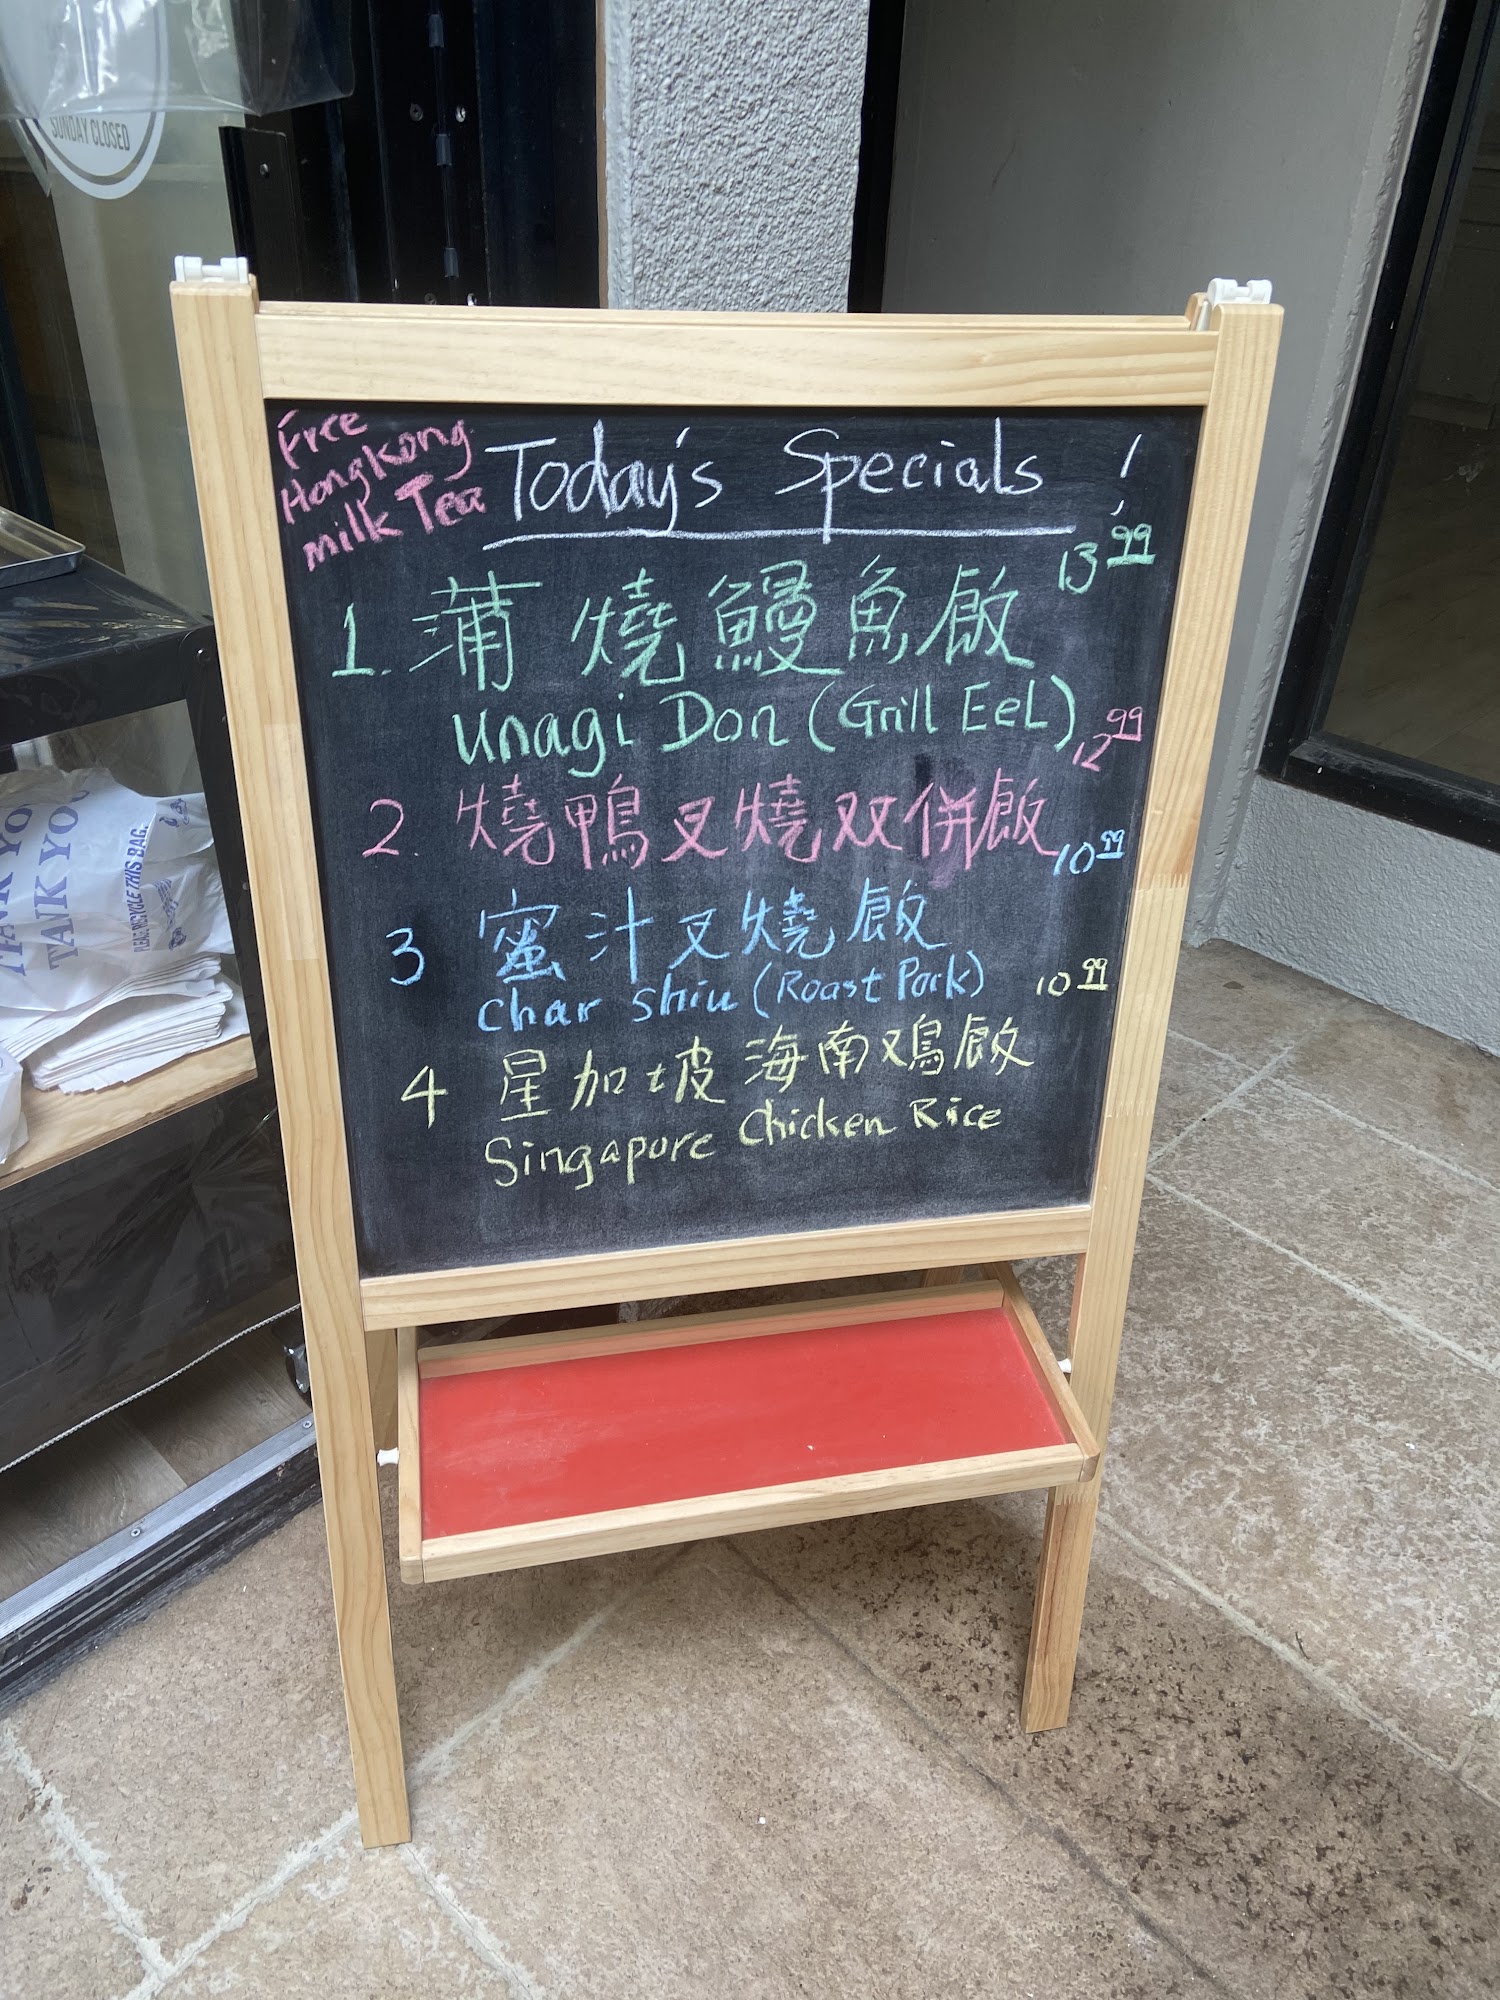 SUNDAY CLOSED
Free
Hongkong
milk Tea
Today's Specials !
1. 蒲燒鰻魚飯 13.99
Unagi Don (Grill EeL)
2. 燒鴨叉燒双併飯 12.99
3 蜜汁叉燒飯 10.99
Char Shiu (Roast Pork)
4 星加坡海南鸡飯 10.99
Singapore Chicken Rice
TANK YOU
PLEASE RECYCLE THIS BAG.